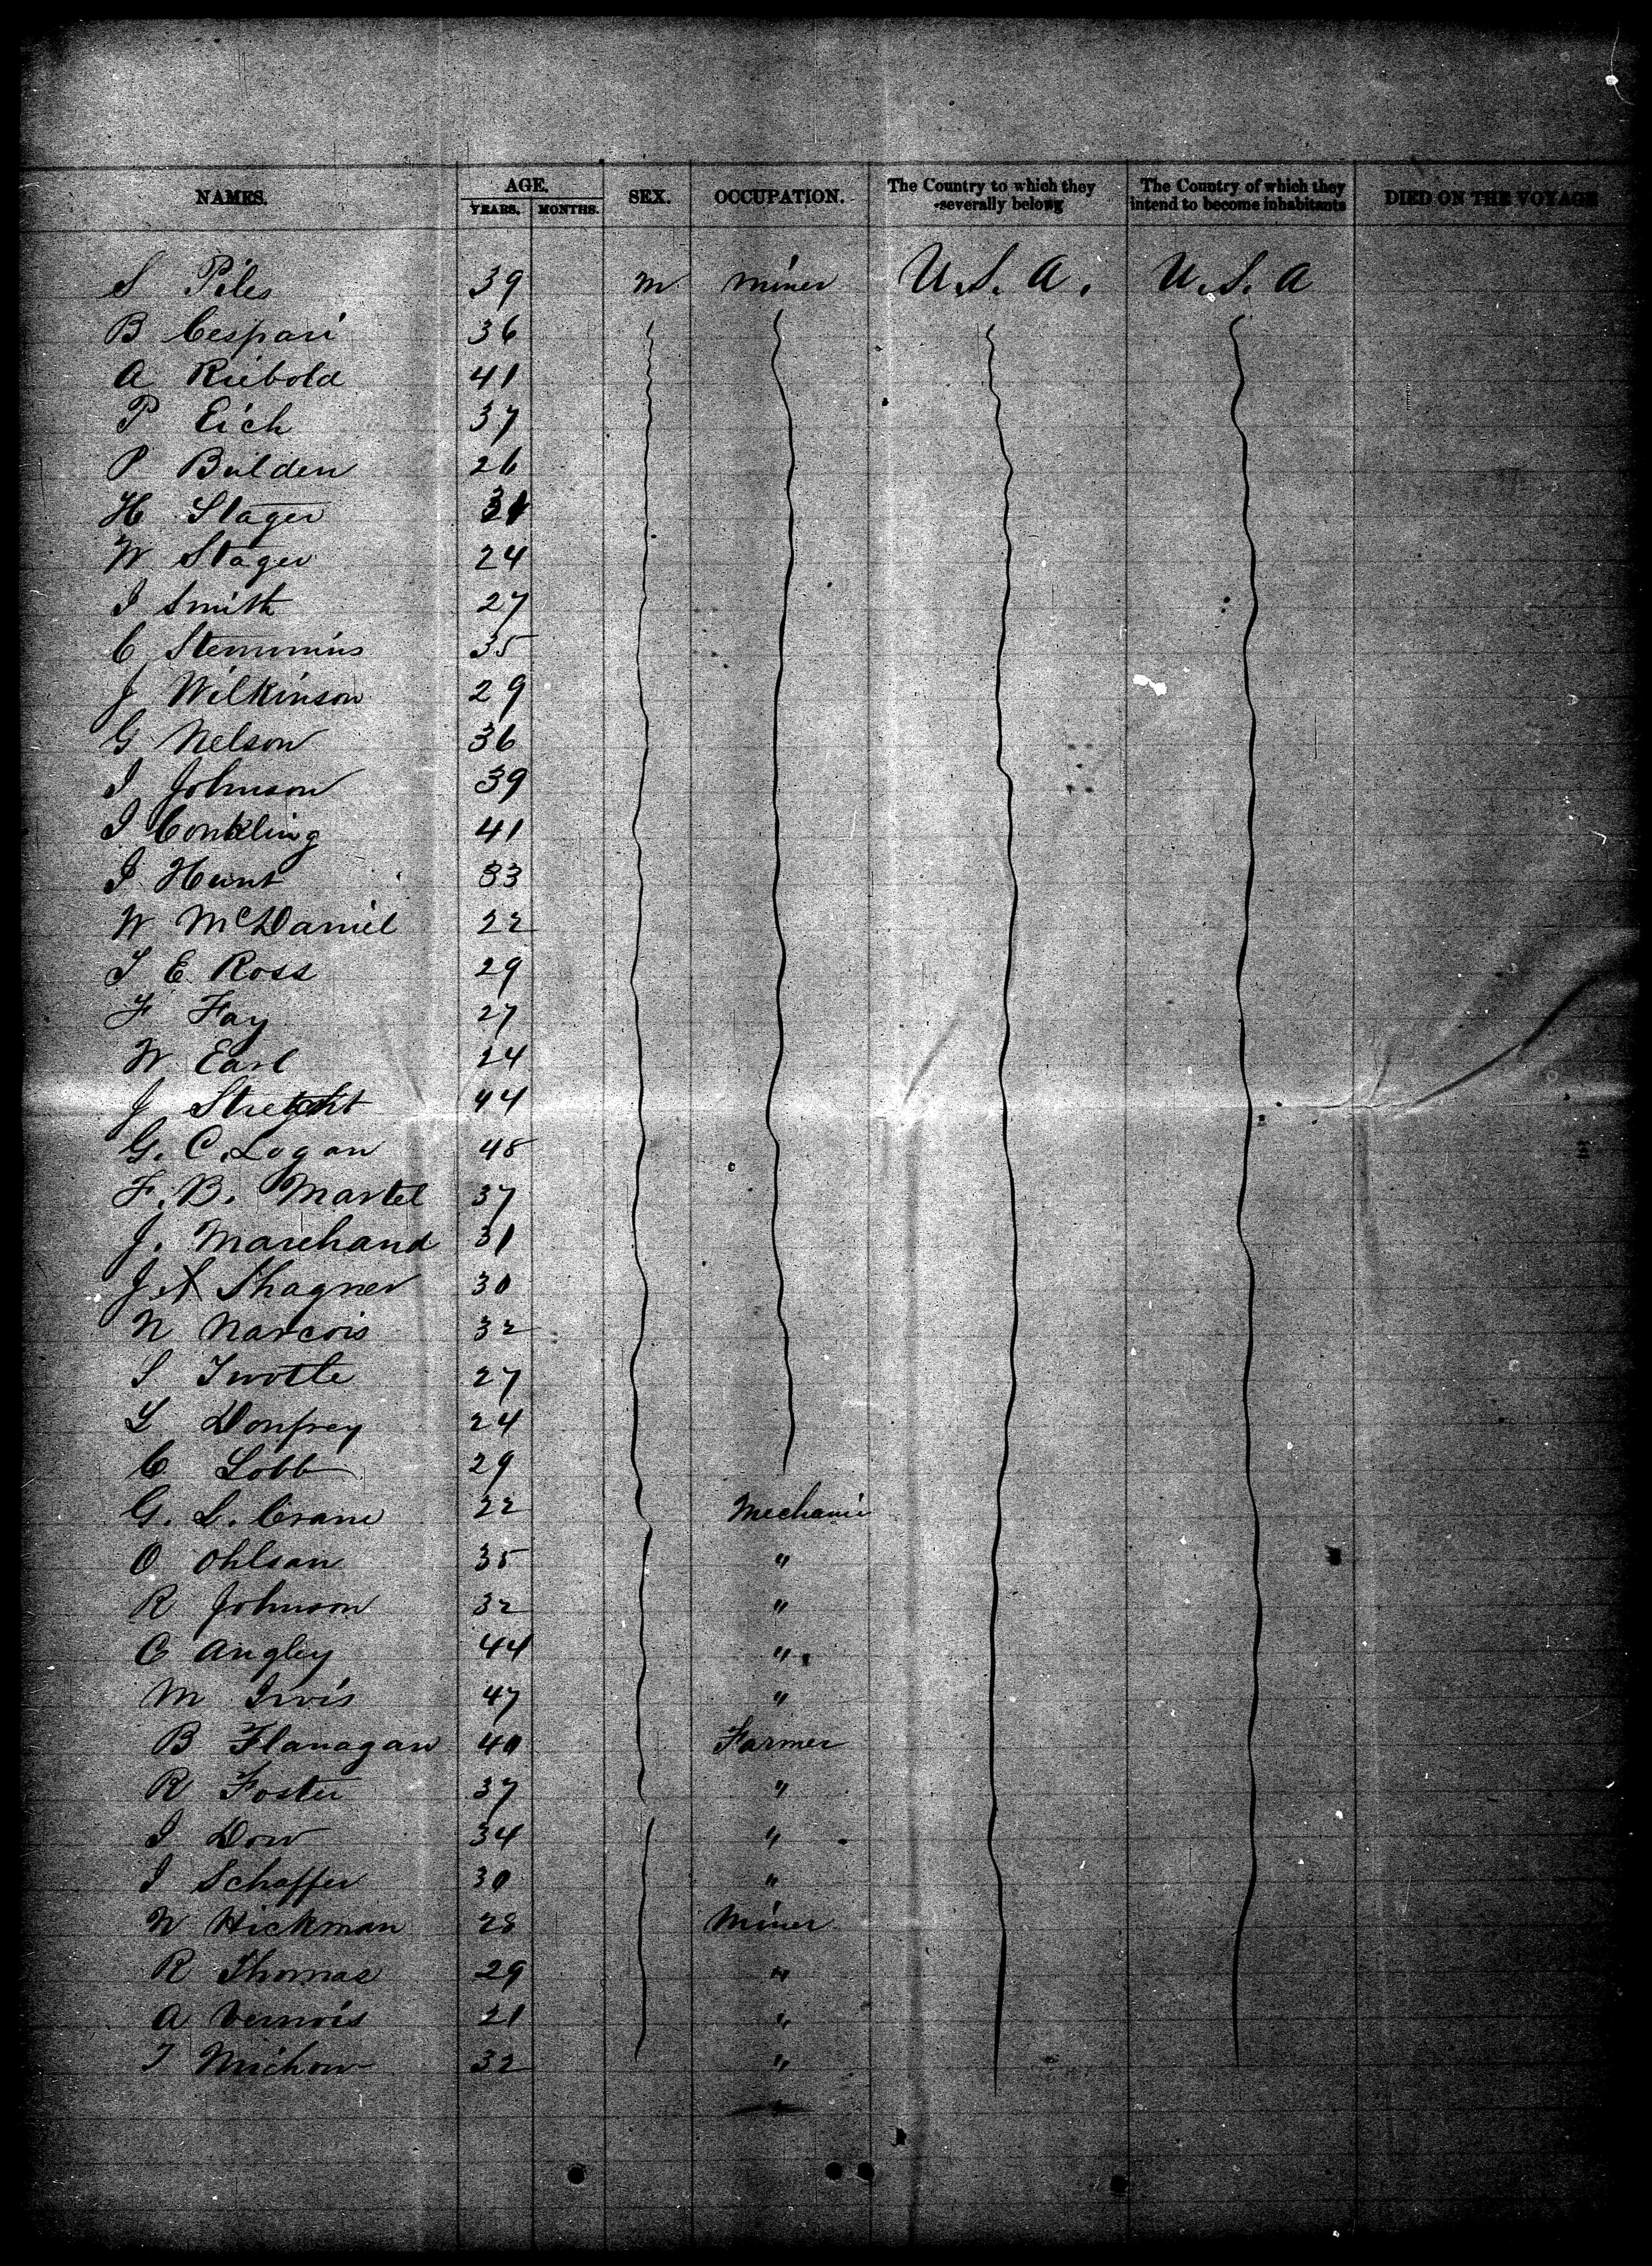 NAMES. AGE. YEARS. MONTHS. SEX. OCCUPATION. The Country to which they severally belong The Country of which they intend to become inhabitants DIED ON THE VOYAGE
S Piles 39 M Miner U.S.A. U.S.A
B Cespari 36
A Riebold 41
P Eich 37
P Builden 26
H Stager 31
W Stager 24
I Smith 27
C Stemmins 35
J Wilkinson 29
G Nelson 36
I Johnson 39
I Conkling 41
I Hunt 33
W McDaniel 22
T E Ross 29
F Fay 27
W Earl 24
J 44
G. C. Logan 48
F. B. Martel 37
J. Marchand 31
J. Shagner 30
N Narcois 32
S Twotte 27
L Donfrey 24
C Lobb 29
G. L. Crane 22 Mechanic
O Ohlsan 35 "
R Johnson 32 "
C Angley 44 "
M Irvis 47 "
B Flanagan 40 Farmer
R Foster 37 "
I Dow 34 "
I Schaffer 30 "
W Hickman 28 Miner
R Thomas 29 "
A Vernois 21 "
T Michow 32 "